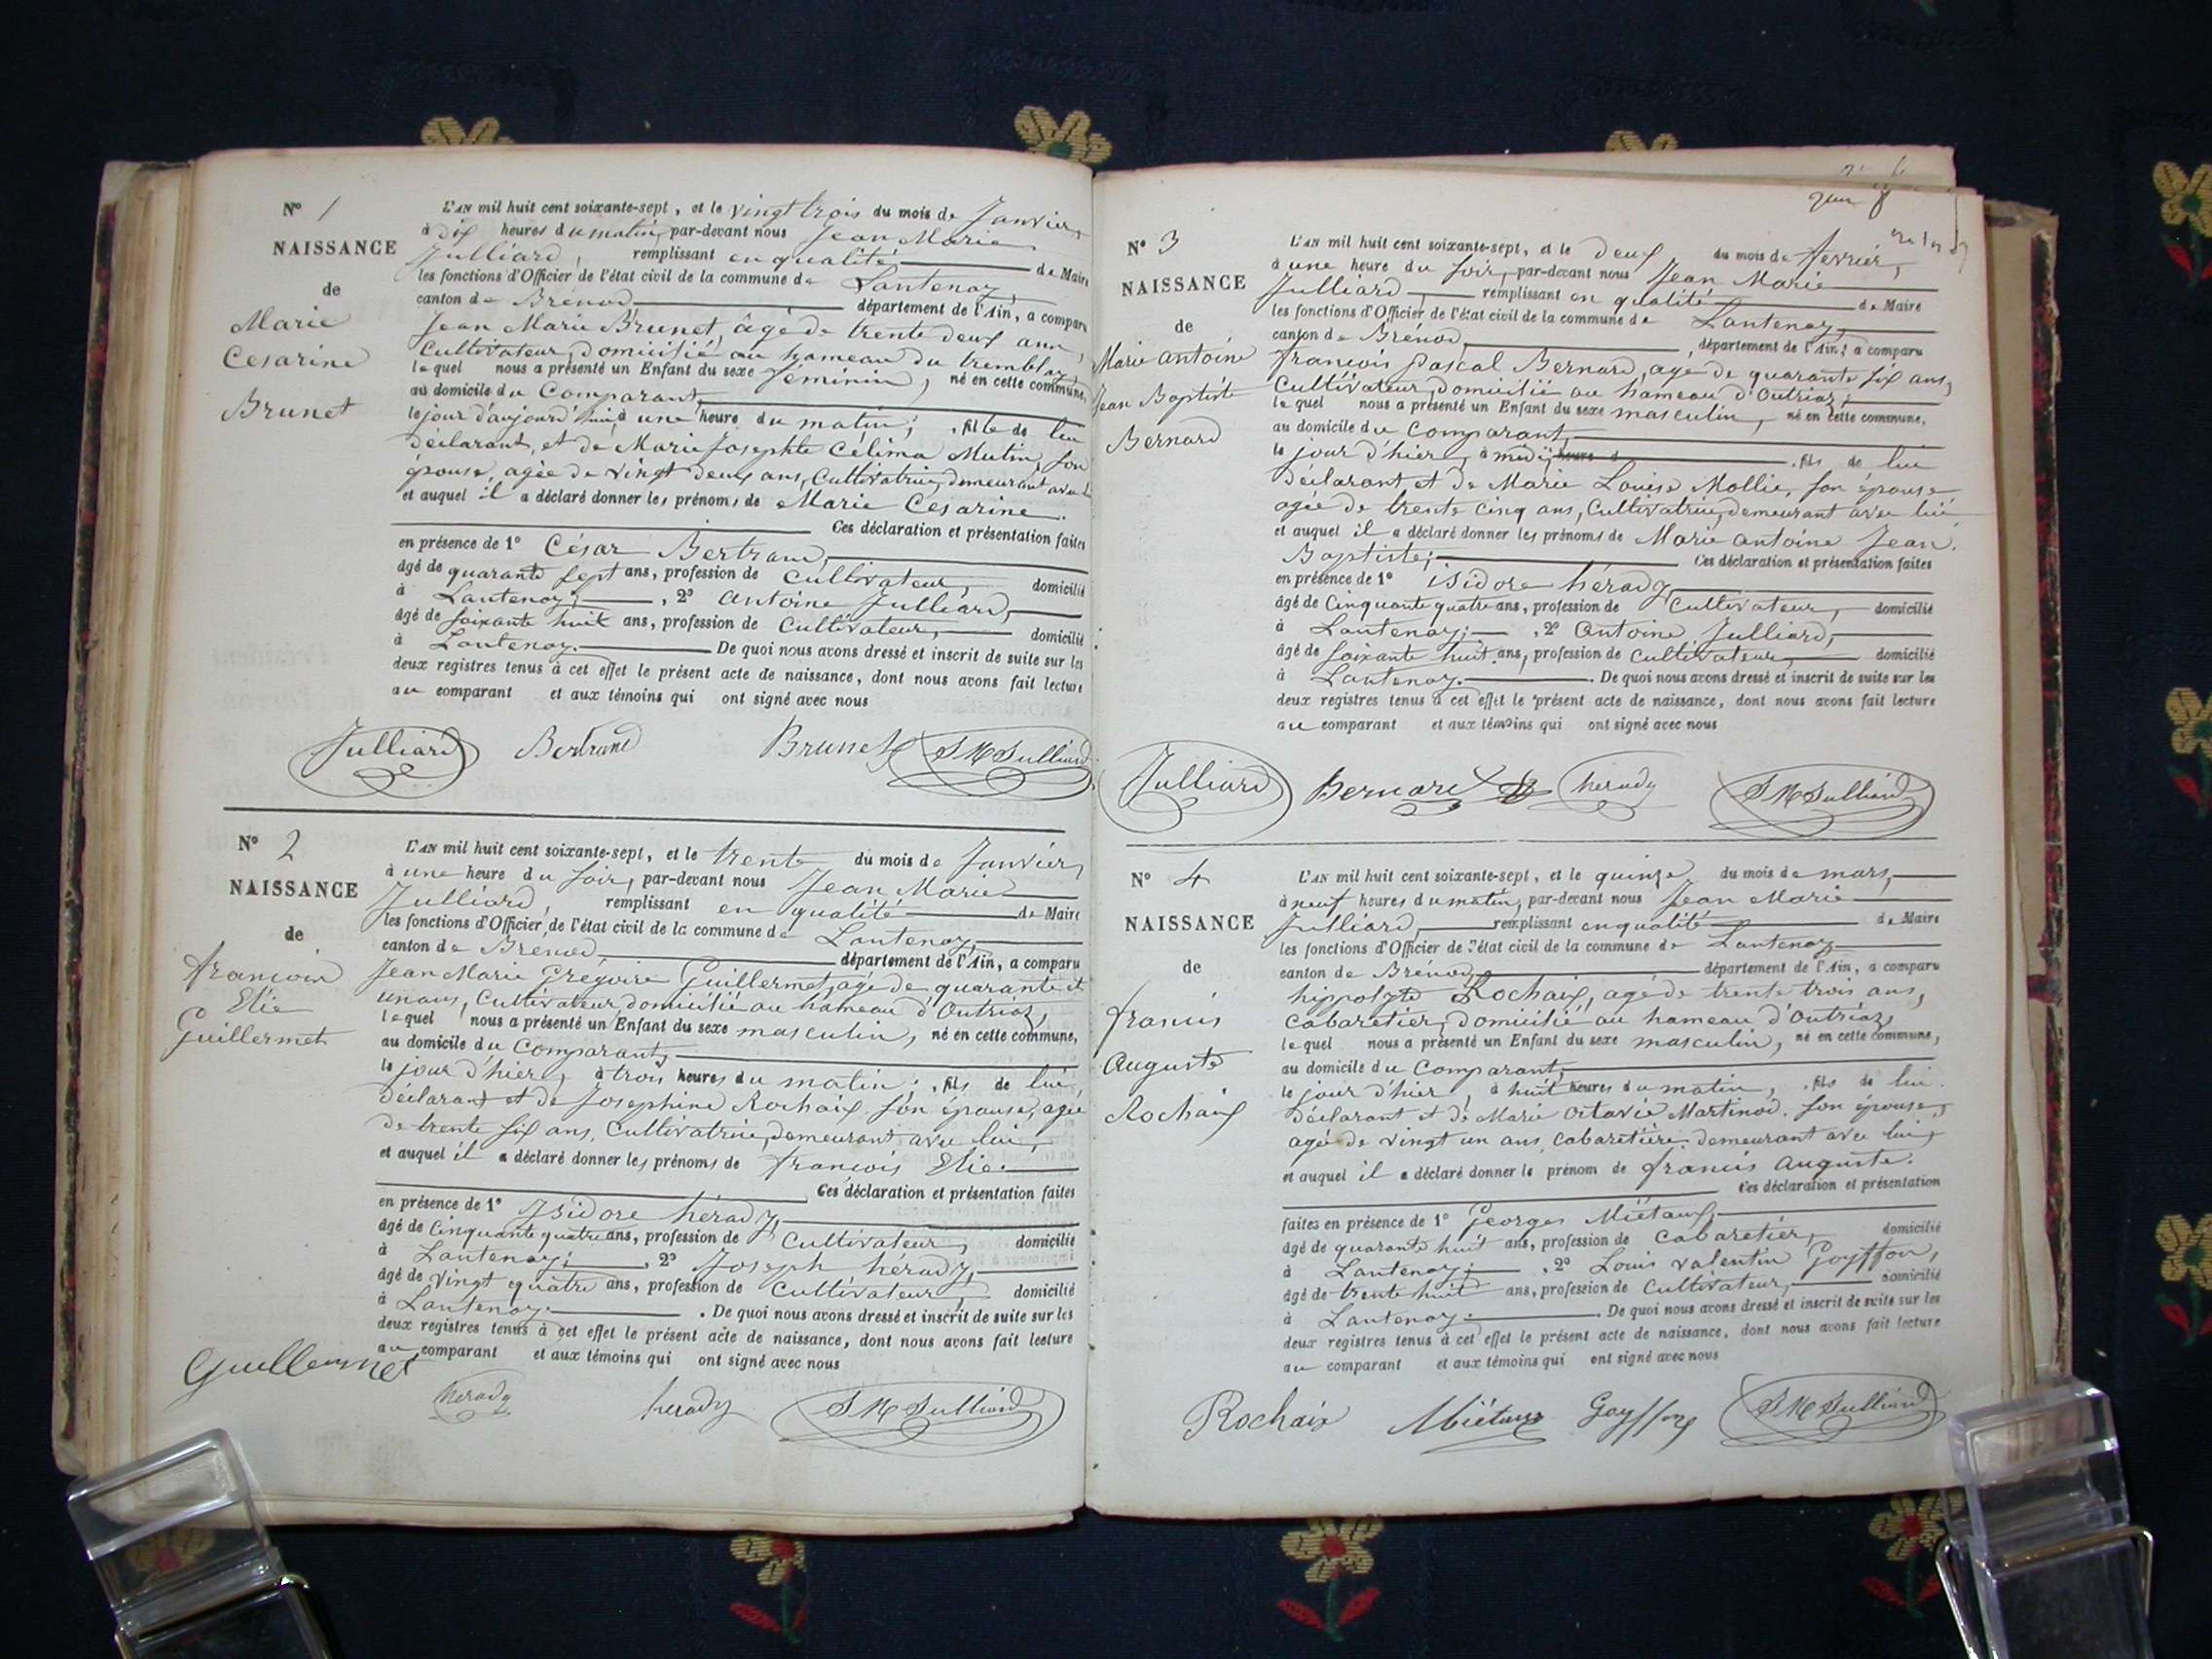 N° 1
NAISSANCE
de
Marie
Cesarine
Brunet
L'AN mil huit cent soixante-sept, et le vingt trois du mois de Janvier,
à dix heures du matin, par-devant nous Jean Marie
Julliard, remplissant en qualité de Maire
les fonctions d'Officier de l'état civil de la commune de Lantenay,
canton de Brénod, département de l'Ain, a comparu
Jean Marie Brunet, âgé de trente deux ans,
Cultivateur, domicilié au hameau du tremblay
lequel nous a présenté un Enfant du sexe féminin, né en cette commune,
au domicile du Comparant,
le jour d'aujourd'hui, à une heure du matin; fille de lui
déclarant, et de Marie Josephte Célima Mutin, son
épouse, agée de vingt deux ans, Cultivatrice, demeurant avec lui
et auquel il a déclaré donner les prénoms de Marie Cesarine.
Ces déclaration et présentation faites
en présence de 1° César Bertrand,
âgé de quarante sept ans, profession de Cultivateur, domicilié
à Lantenay; , 2° Antoine Julliard,
âgé de soixante huit ans, profession de Cultivateur, domicilié
à Lantenay. De quoi nous avons dressé et inscrit de suite sur les
deux registres tenus à cet effet le présent acte de naissance, dont nous avons fait lecture
au comparant et aux témoins qui ont signé avec nous
Julliard Bertrand Brunet J M Julliard
N° 2
NAISSANCE
de
francois
Elie
Guillermet
L'AN mil huit cent soixante-sept, et le trente du mois de Janvier,
à une heure du soir, par-devant nous Jean Marie
Julliard, remplissant en qualité de Maire
les fonctions d'Officier de l'état civil de la commune de Lantenay,
canton de Brénod, département de l'Ain, a comparu
Jean Marie Grégoire Guillermet, agé de quarante et
un ans, Cultivateur, domicilié au hameau d'Outriaz,
lequel nous a présenté un Enfant du sexe masculin, né en cette commune,
au domicile du Comparant,
le jour d'hier, à trois heures du matin; fils de lui
déclarant et de Josephine Rochaix son épouse, agée
de trente six ans, Cultivatrice, demeurant avec lui,
et auquel il a déclaré donner les prénoms de francois Elie.
Ces déclaration et présentation faites
en présence de 1° Isidore hérady,
âgé de Cinquante quatre ans, profession de Cultivateur, domicilié
à Lantenay; , 2° Joseph hérady,
âgé de vingt quatre ans, profession de Cultivateur, domicilié
à Lantenay. . De quoi nous avons dressé et inscrit de suite sur les
deux registres tenus à cet effet le présent acte de naissance, dont nous avons fait lecture
au comparant et aux témoins qui ont signé avec nous
Guillermet herady herady J M Julliard
N° 3
NAISSANCE
de
Marie antoine
Jean Baptiste
Bernard
L'AN mil huit cent soixante-sept, et le deux du mois de fevrier,
à une heure du soir, par-devant nous Jean Marie
Julliard, remplissant en qualité de Maire
les fonctions d'Officier de l'état civil de la commune de Lantenay,
canton de Brénod, , département de l'Ain, a comparu
francois pascal Bernard, agé de quarante six ans,
Cultivateur, domicilié au hameau d'Outriaz,
lequel nous a présenté un Enfant du sexe masculin, né en cette commune,
au domicile du Comparant,
le jour d'hier, à midi, heure d . fils de lui
déclarant et de Marie Louise Mollie, son épouse
agée de trente cinq ans, Cultivatrice, demeurant avec lui
et auquel il a déclaré donner les prénoms de Marie antoine Jean
Baptiste; Ces déclaration et présentation faites
en présence de 1° isidore hérady,
âgé de Cinquante quatre ans, profession de Cultivateur, domicilié
à Lantenay; , 2° Antoine Julliard,
âgé de soixante huit ans, profession de Cultivateur, domicilié
à Lantenay. . De quoi nous avons dressé et inscrit de suite sur les
deux registres tenus à cet effet le présent acte de naissance, dont nous avons fait lecture
au comparant et aux témoins qui ont signé avec nous
Julliard Bernard herady J M Julliard
N° 4
NAISSANCE
de
francis
Auguste
Rochaix
L'AN mil huit cent soixante-sept, et le quinze du mois de mars,
à neuf heures du matin, par-devant nous Jean Marie
Julliard, remplissant en qualité de Maire
les fonctions d'Officier de l'état civil de la commune de Lantenay
canton de Brénod, département de l'Ain, a comparu
hippolyte Rochaix, agé de trente trois ans,
Cabaretier, domicilié au hameau d'Outriaz,
lequel nous a présenté un Enfant du sexe masculin, né en cette commune,
au domicile du Comparant,
le jour d'hier, à huit heures du matin, . fils de lui
déclarant et de Marie Octavie Martinod, son épouse,
agée de vingt un ans, cabaretière, demeurant avec lui,
et auquel il a déclaré donner le prénom de francis auguste.
Ces déclaration et présentation
faites en présence de 1° Georges Miétaux,
âgé de quarante huit ans, profession de Cabaretier, domicilié
à Lantenay; , 2° Louis valentin Goyffon,
âgé de trente huit ans, profession de Cultivateur, domicilié
à Lantenay. . De quoi nous avons dressé et inscrit de suite sur les
deux registres tenus à cet effet le présent acte de naissance, dont nous avons fait lecture
au comparant et aux témoins qui ont signé avec nous
Rochaix Miétaux Goyffon J M Julliard